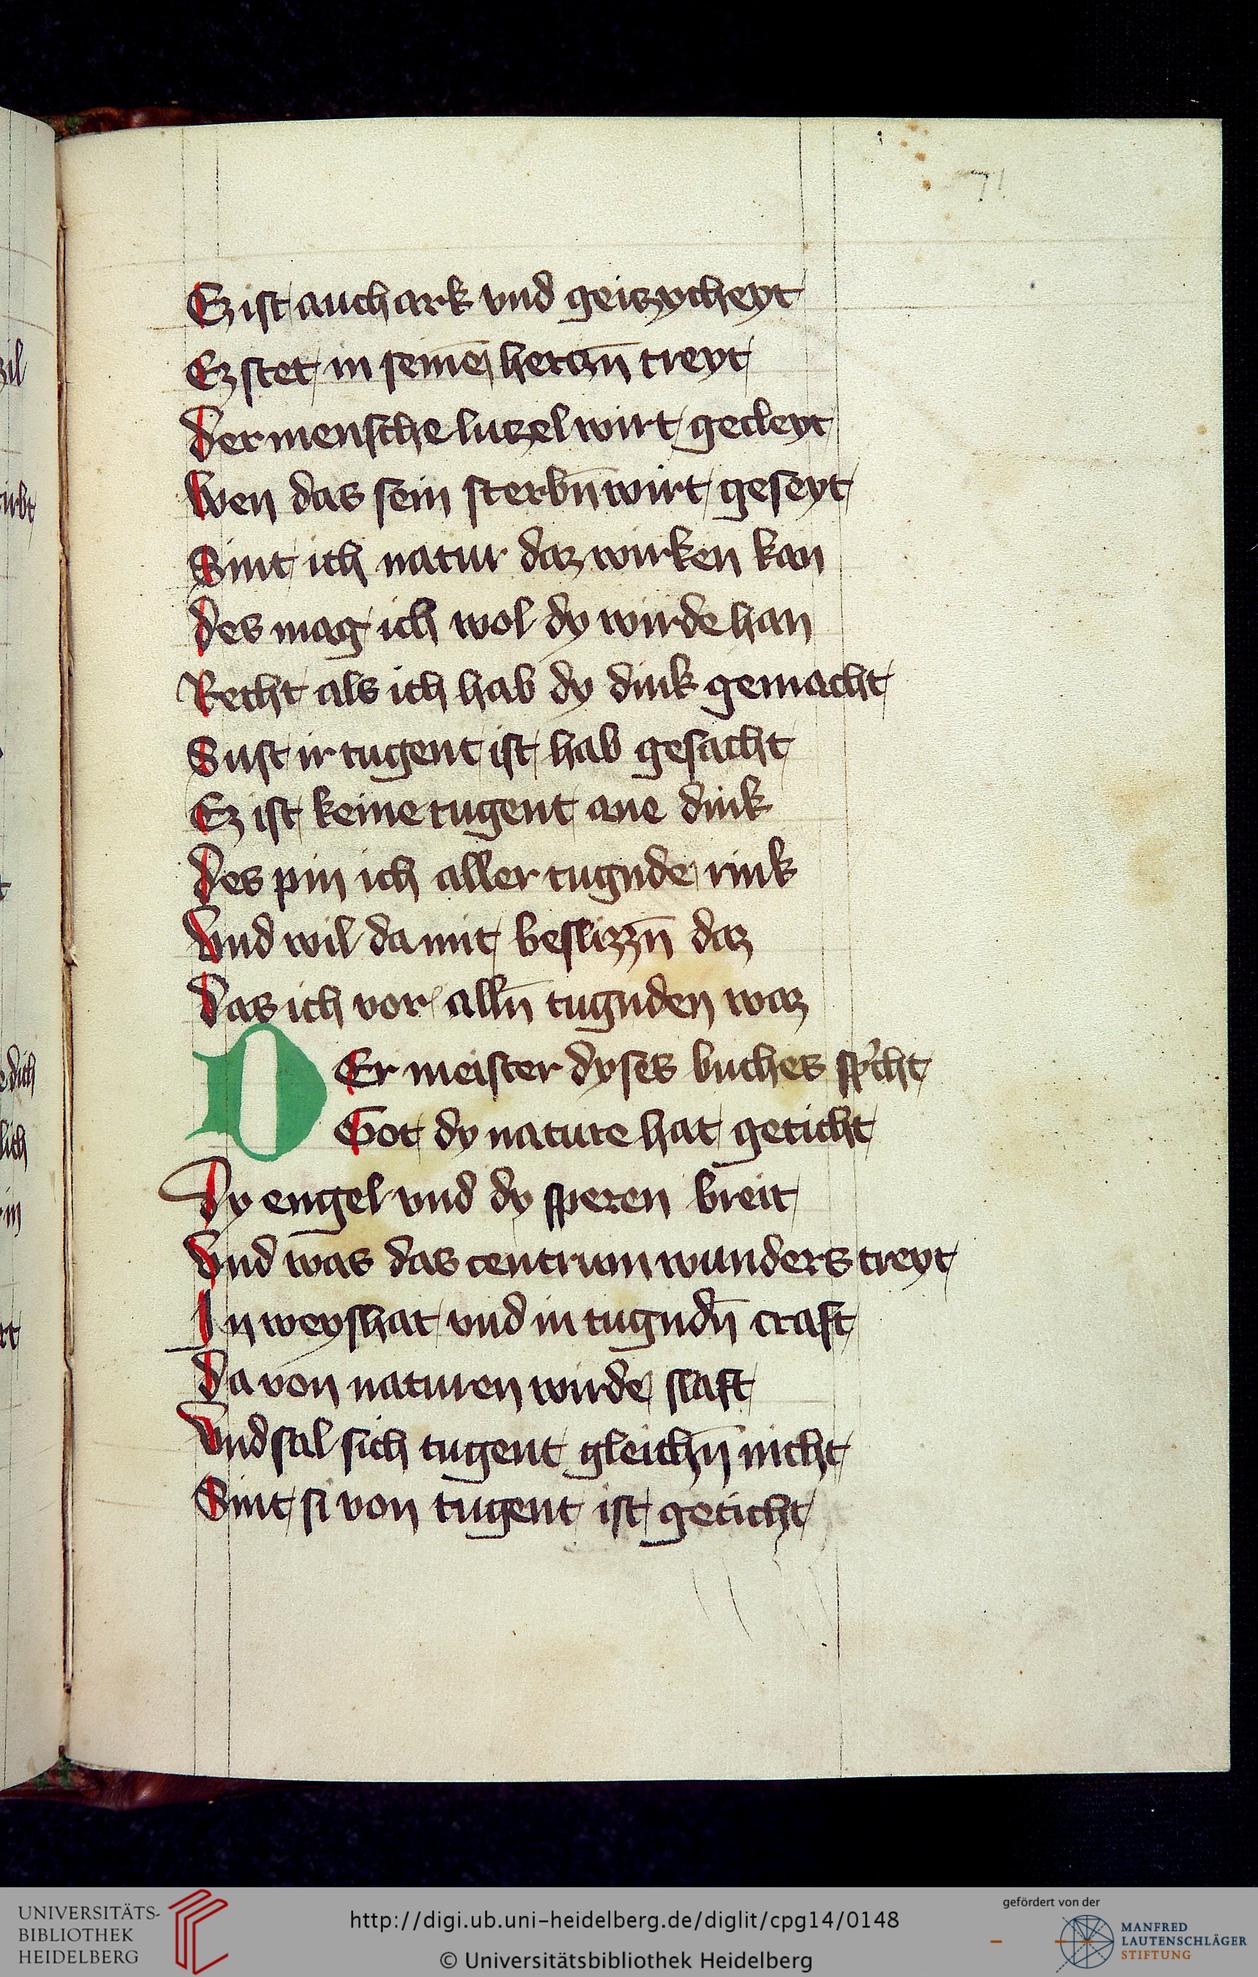 71
Ez ist auch ark vnd geiszycheyt
Ez stet in seinē herczn̄ treyt
Der mensche luszel wirt gecleyt
Wen das sein sterbn̄ wirt geseyt
Sint ich natur daz wirken kan
Des mag ich wol dy wirde han
Recht als ich hab dy dink gemacht
Sust ir tugent ist hab gesacht
Ez ist keine tugent ane dink
Des pin ich aller tugnde rink
Vnd wil da mit beslizzn̄ daz
Das ich vor alln̄ tugnden waz
DEr meister dyses buches spͥcht
Got dy nature hat geticht
Dy engel vnd dy speren breit
Vnd was das centrum wunders treyt
In weyshat vnd in tugndn̄ craft
Da von naturen wirde slaft
Vnd sal sich tugent gleichn̄ nicht
Sint si von tugent ist geticht
UNIVERSITÄTS-
BIBLIOTHEK
HEIDELBERG
http://digi.ub.uni-heidelberg.de/diglit/cpg14/0148
© Universitätsbibliothek Heidelberg
gefördert von der
MANFRED
LAUTENSCHLÄGER
STIFTUNG